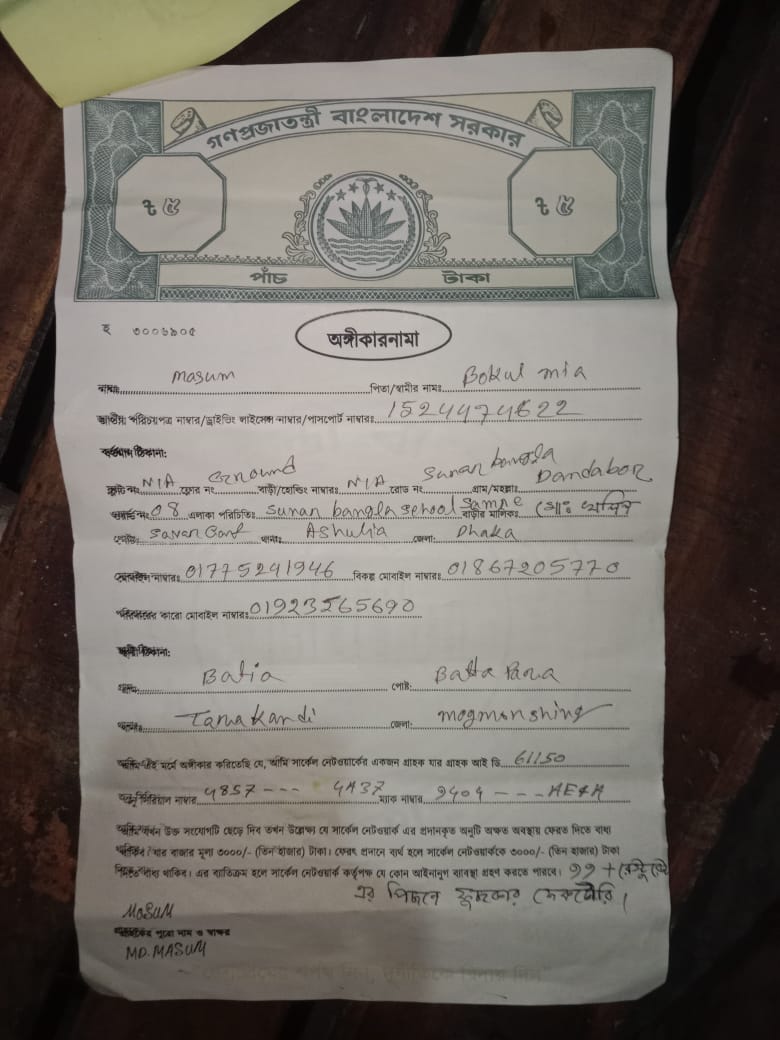 গণপ্রজাতন্ত্রী বাংলাদেশ সরকার
৳ ৫ ৳ ৫
পাঁচ টাকা
হ ৩০০৬৯০৫
অঙ্গীকারনামা
নামঃ Masum পিতা/স্বামীর নামঃ Bokul mia
জাতীয় পরিচয়পত্র নাম্বার/ড্রাইভিং লাইসেন্স নাম্বার/পাসপোর্ট নাম্বারঃ 1524474622
বর্তমান ঠিকানা:
ফ্লাট নং N/A ফ্লোর নং Ground বাড়ী/হোল্ডিং নাম্বারঃ N/A রোড নং Sunan bangla গ্রাম/মহল্লাঃ Dandabor
ওয়ার্ড নং 08 এলাকা পরিচিতিঃ Sunan bangla School Samne বাড়ীর মালিকঃ মোঃ
পোষ্টঃ Savar Cant থানাঃ Ashulia জেলা: Dhaka
মোবাইল নাম্বারঃ 01775241946 বিকল্প মোবাইল নাম্বারঃ 01867205770
পরিবারের কারো মোবাইল নাম্বারঃ 01923265690
স্থায়ী ঠিকানা:
গ্রামঃ Balia পোষ্ট: Batta Para
থানাঃ Tarakandi জেলা: mogmonshing
আমি এই মর্মে অঙ্গীকার করিতেছি যে, আমি সার্কেল নেটওয়ার্কের একজন গ্রাহক যার গ্রাহক আই ডি 61150
অনু সিরিয়াল নাম্বার 4857--- 4A37 ম্যাক নাম্বার 9404---AE7A
আমি যখন উক্ত সংযোগটি ছেড়ে দিব তখন উল্লেক্ষ্য যে সার্কেল নেটওয়ার্ক এর প্রদানকৃত অনুটি অক্ষত অবস্থায় ফেরত দিতে বাধ্য
থাকিব। যার বাজার মূল্য ৩০০০/- (তিন হাজার) টাকা। ফেরৎ প্রদানে ব্যর্থ হলে সার্কেল নেটওয়ার্ককে ৩০০০/- (তিন হাজার) টাকা
দিতে বাধ্য থাকিব। এর ব্যতিক্রম হলে সার্কেল নেটওয়ার্ক কর্তৃপক্ষ যে কোন আইনানুগ ব্যাবস্থা গ্রহণ করতে পারবে।
এর পিছনে
Masum
গ্রাহকের পুরো নাম ও স্বাক্ষর
MD. MASUM